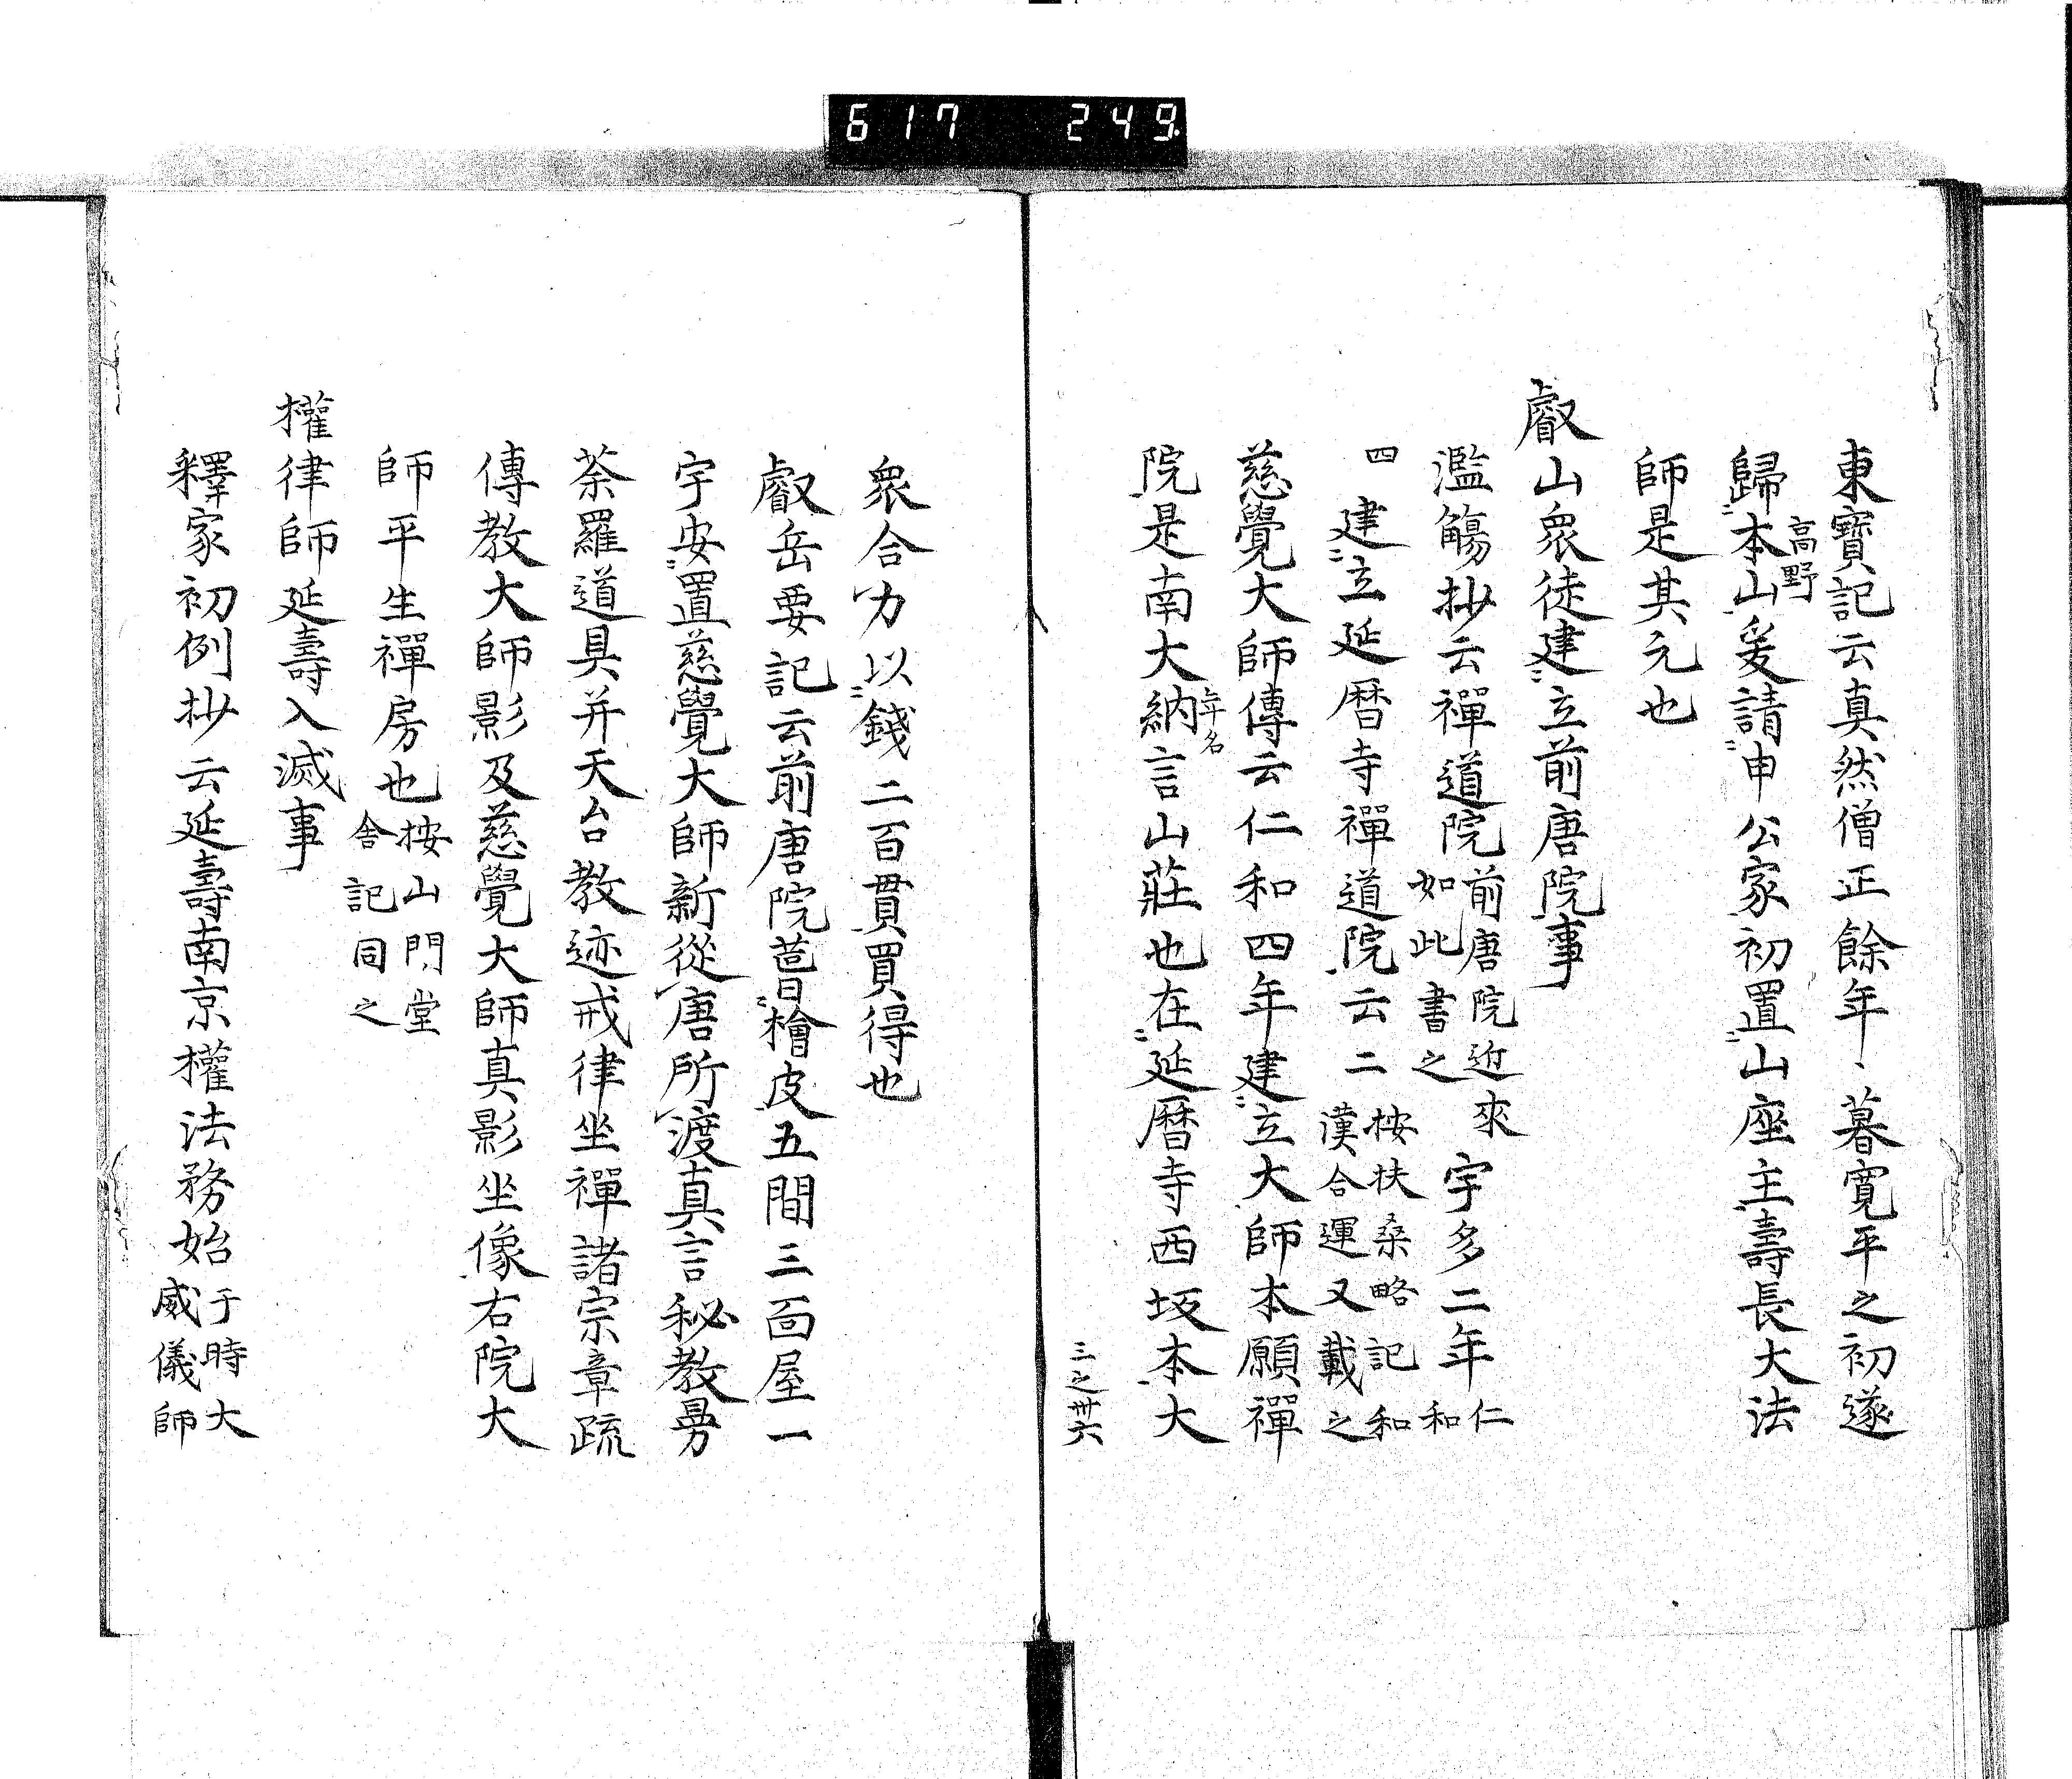 617 249
東寶記云真然僧正餘年、暮寛平之初遂
歸本山爰請申公家初置山座主壽長大法
高野
師是其元也
叡山衆徒建立前唐院事
濫觴抄云禪道院前唐院近來如此書之宇多二年仁和
四建立延暦寺禪道院云二按扶桑略記和漢合運又載之
慈覺大師傳云仁和四年建立大師本願禪
院是南大納言山莊也在延暦寺西坂本大
年名
三之卅六
衆合力以錢二百貫買得也
叡岳要記云前唐院葺檜皮五間三面屋一
宇安置慈覺大師新從唐所渡真言秘教曼
荼羅道具并天台教迹戒律坐禪諸宗章疏
傳教大師影及慈覺大師真影坐像右院大
師平生禪房也按山門堂舍記同之
權律師延壽入滅事
釋家初例抄云延壽南京權法務始于時大威儀師